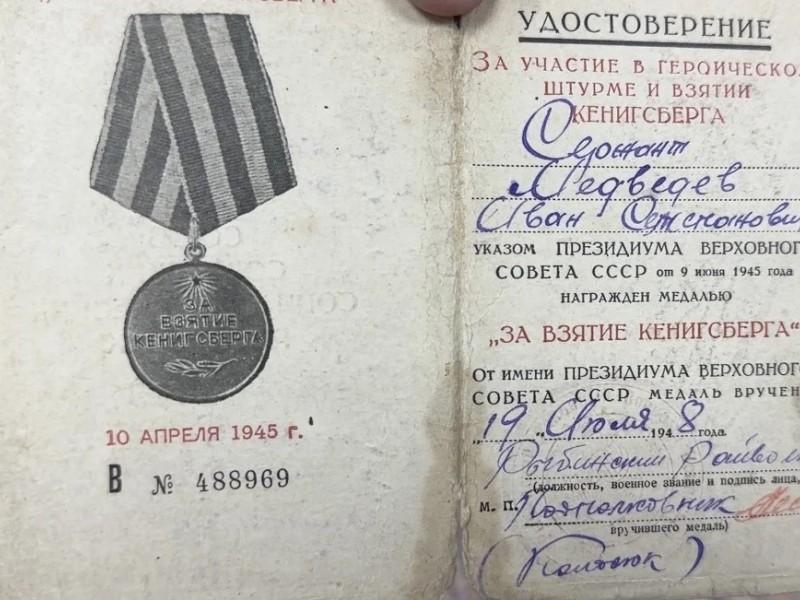 ЗА
ВЗЯТИЕ
КЕНИГСБЕРГА
10 АПРЕЛЯ 1945 г.
В № 488969
УДОСТОВЕРЕНИЕ
ЗА УЧАСТИЕ В ГЕРОИЧЕСКО
ШТУРМЕ И ВЗЯТИИ
КЕНИГСБЕРГА
Сержант
Медведев
Иван Степанович
УКАЗОМ ПРЕЗИДИУМА ВЕРХОВНОГО
СОВЕТА СССР от 9 июня 1945 года
НАГРАЖДЕН МЕДАЛЬЮ
„ЗА ВЗЯТИЕ КЕНИГСБЕРГА“
ОТ ИМЕНИ ПРЕЗИДИУМА ВЕРХОВНОГО
СОВЕТА СССР МЕДАЛЬ ВРУЧЕН
„19„ Июля 1948 года
Рыбинский Райво
(должность, военное звание и подпись лица,
М. П. Подполковник
вручившего медаль)